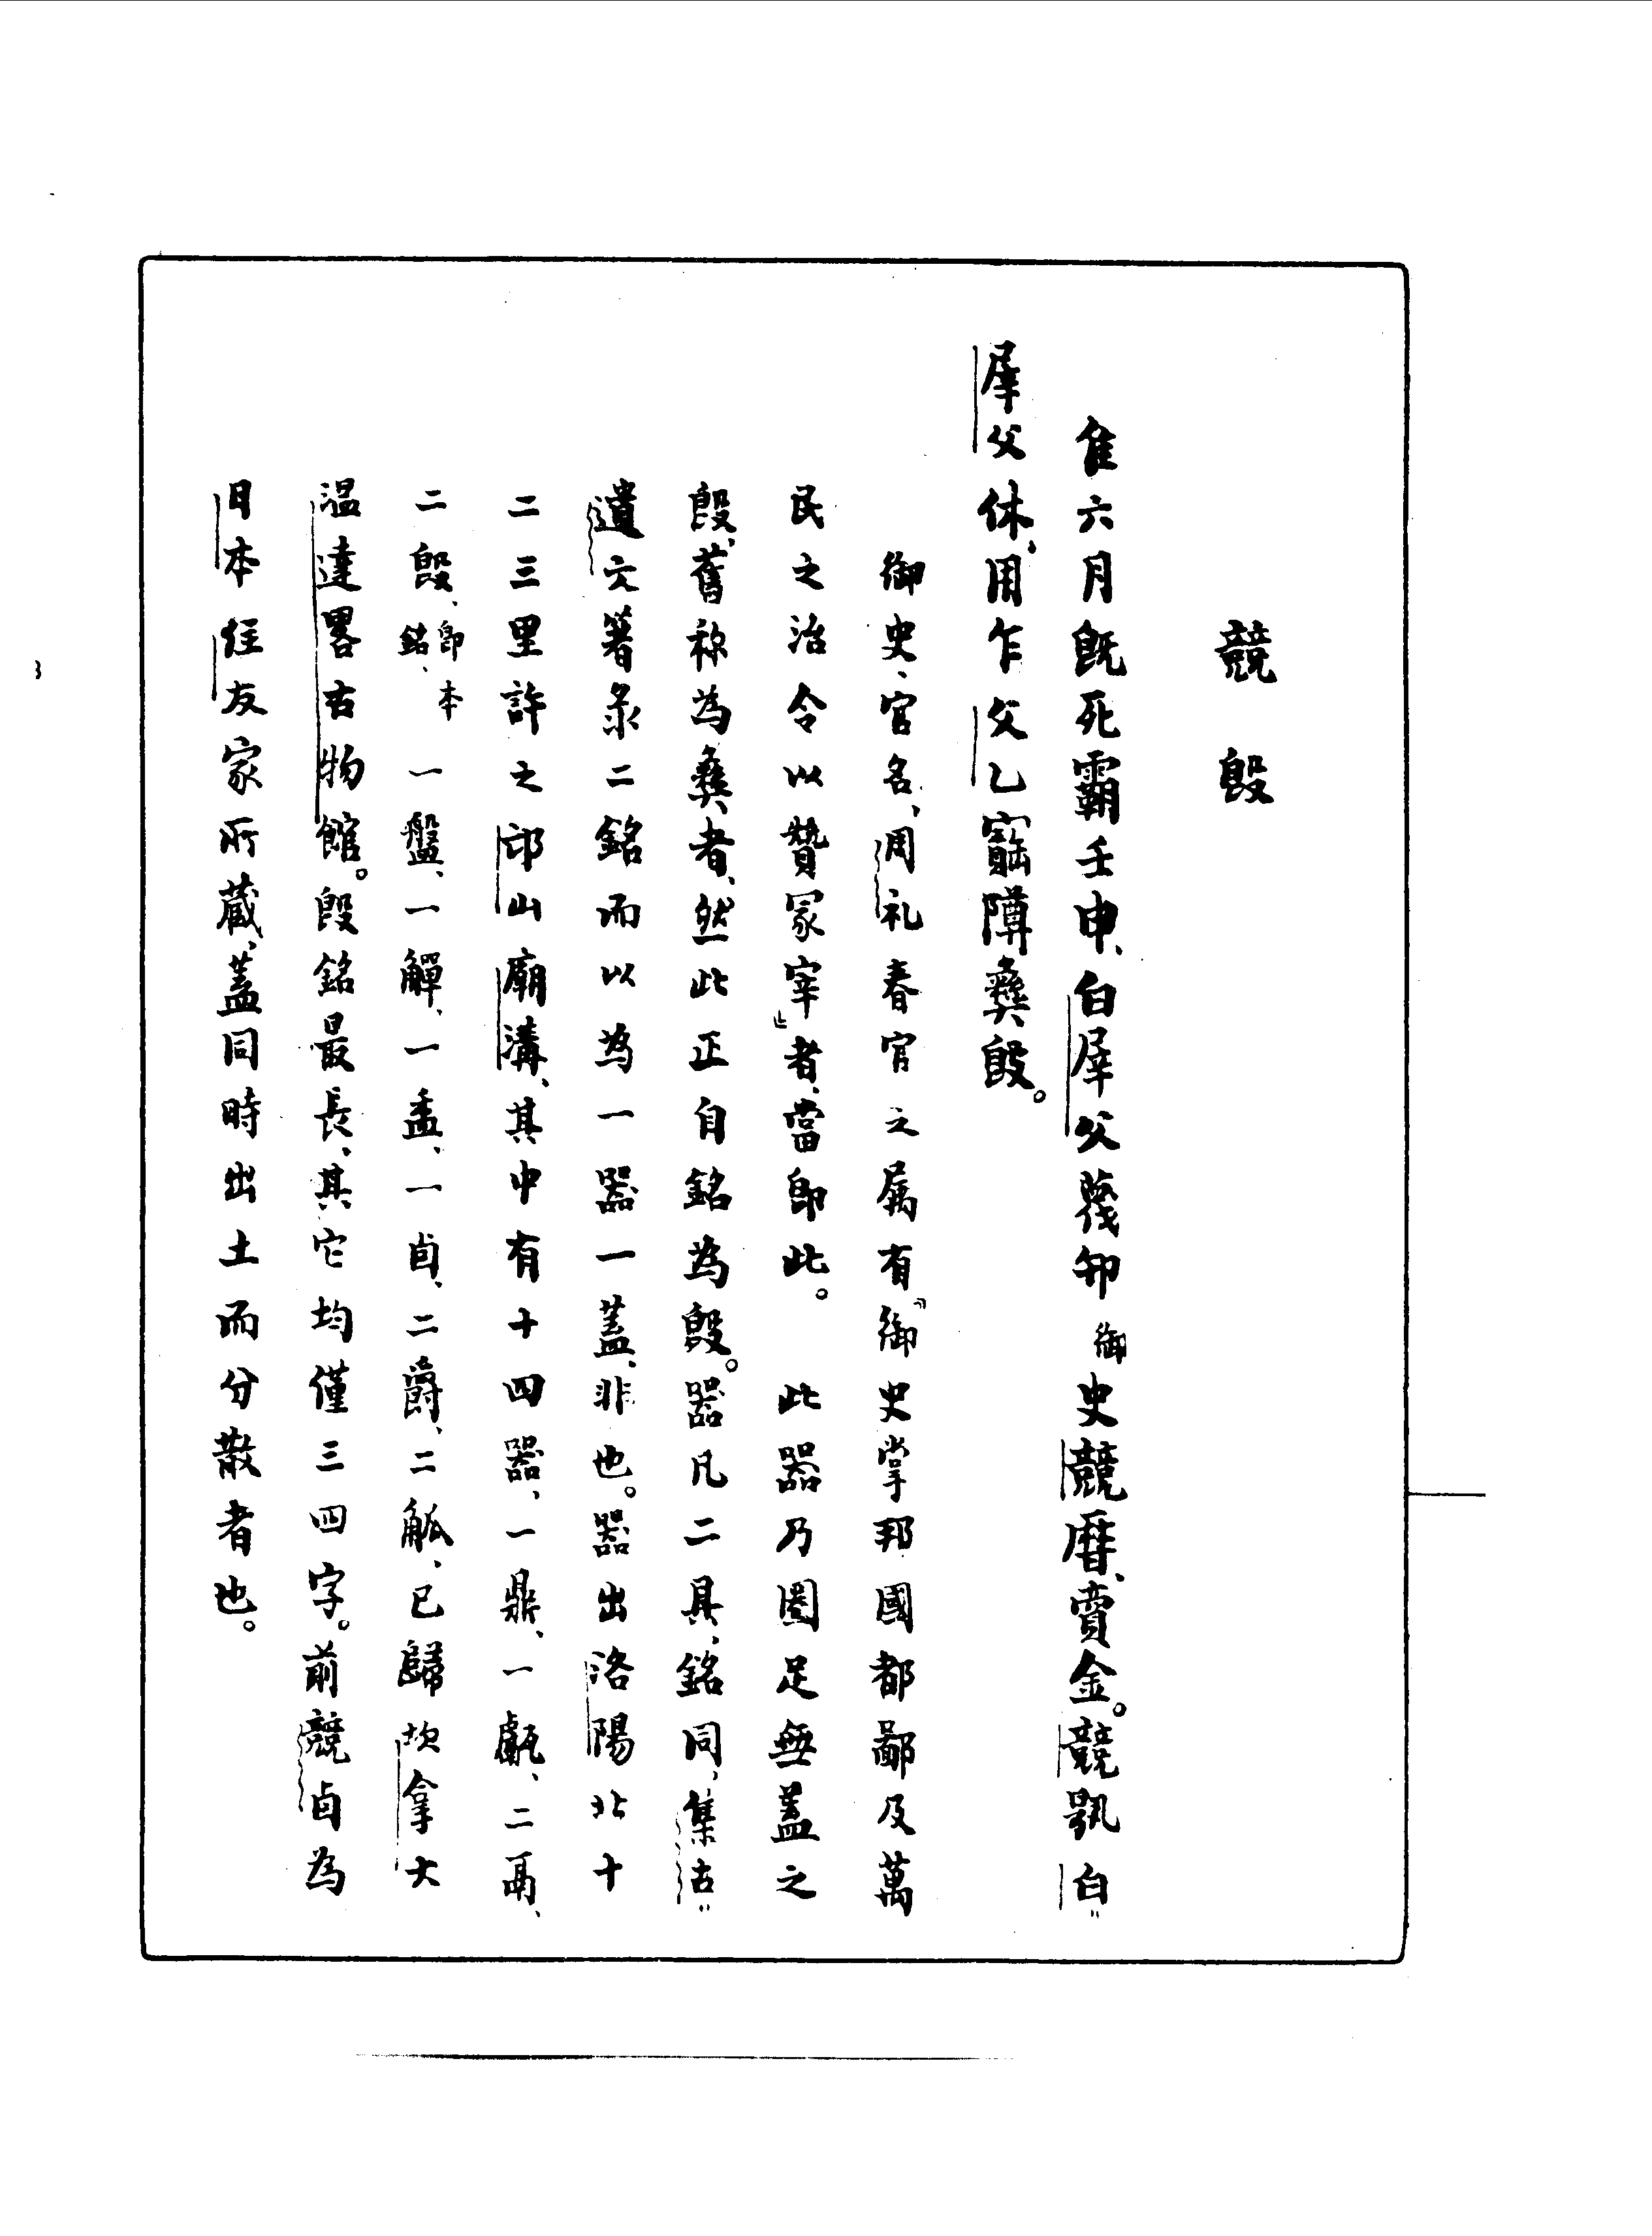 競𣪘
隹六月既死霸壬申、白屖父蔑卸御史競曆、賣金。競䫇白〻
屖父休、用乍父乙寶𨻰彝𣪘。
御史、官名、周礼春官之属有『御史掌邦國都鄙及萬
民之治令以贊冢宰』者、當即此。　此器乃圏足無蓋之
𣪘、舊称為彝者、然此正自銘為𣪘。器凡二具、銘同、集古〻
遺文箸录二銘而以為一器一蓋、非也。器出洛陽北十
二三里許之邙山廟溝、其中有十四器、一鼎、一甗、二鬲、
二𣪘、即本銘、一盤、一觶、一盉、一卣、二爵、二觚、已歸坎拿大
温達畧古物館。𣪘銘最長、其它均僅三四字。前競卣為
日本住友家所蔵、蓋同時出土而分散者也。